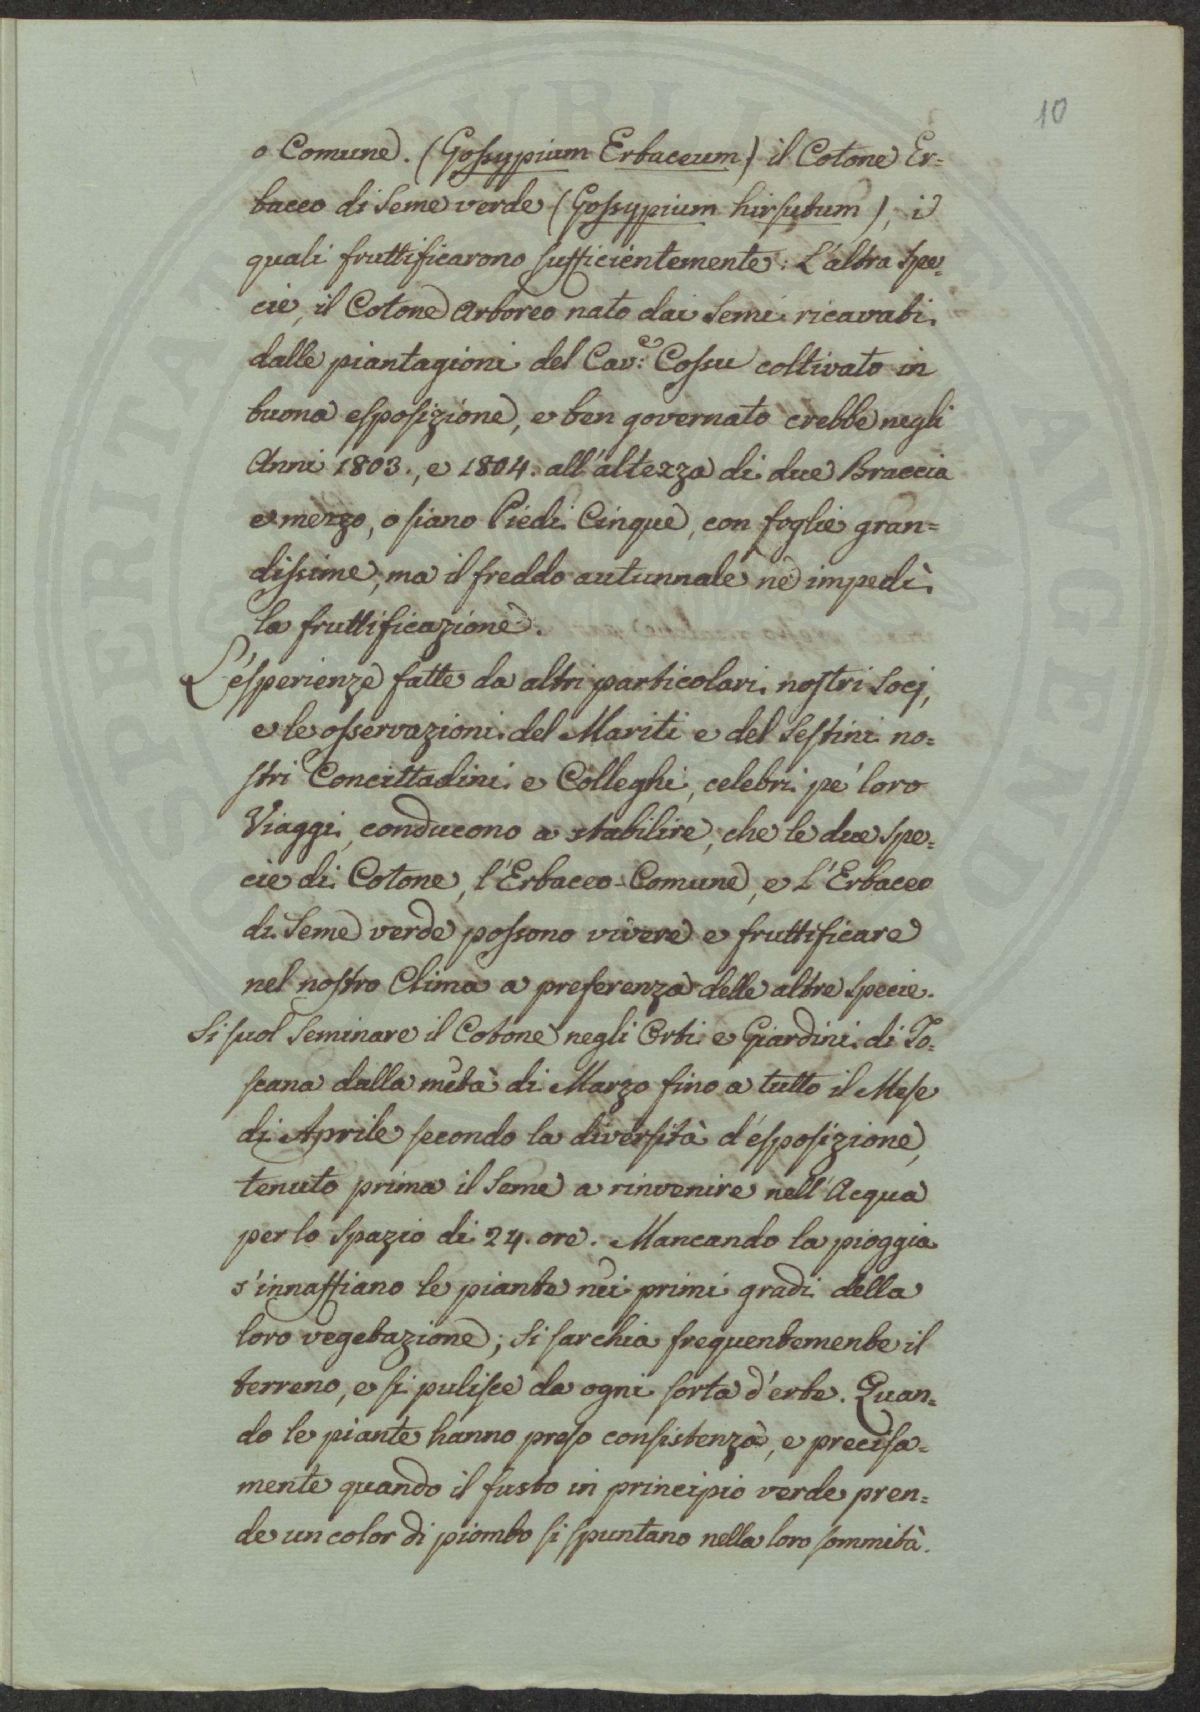 10
o Comune. (Gossypium Erbaceum) il Cotone Er=
baceo di Seme verde (Gossypium hirsutum), i
quali fruttificarono sufficientemente: L'altra Spe=
cie, il Cotone Arboreo nato dai Semi ricavati
dalle piantagioni del Cav.e Cossu coltivato in
buona esposizione, e ben governato crebbe negli
Anni 1803., e 1804. all'altezza di due Braccia
e mezzo, o siano Piedi Cinque, con foglie gran=
dissime, ma il freddo autunnale ne impedì
la fruttificazione.
L'esperienze fatte da altri particolari nostri Socj,
e le osservazioni del Mariti e del Sestini no=
stri Concittadini e Colleghi, celebri pe' loro
Viaggi, conducono a stabilire, che le due spe=
cie di Cotone, l'Erbaceo-Comune, e l'Erbaceo
di Seme verde possono vivere e fruttificare
nel nostro Clima a preferenza delle altre Specie.
Si suol Seminare il Cotone negli Orti e Giardini di To=
scana dalla metà di Marzo fino a tutto il Mese
di Aprile secondo la diversità d'esposizione,
tenuto prima il Seme a rinvenire nell'Acqua
per lo Spazio di 24. ore. Mancando la pioggia
s'innaffiano le piante nei primi gradi della
loro vegetazione; Si sarchia frequentemente il
terreno, e si pulisce da ogni sorta d'erbe. Quan=
do le piante hanno preso consistenza, e precisa=
mente quando il fusto in principio verde pren=
de un color di piombo si spuntano nella loro sommità.